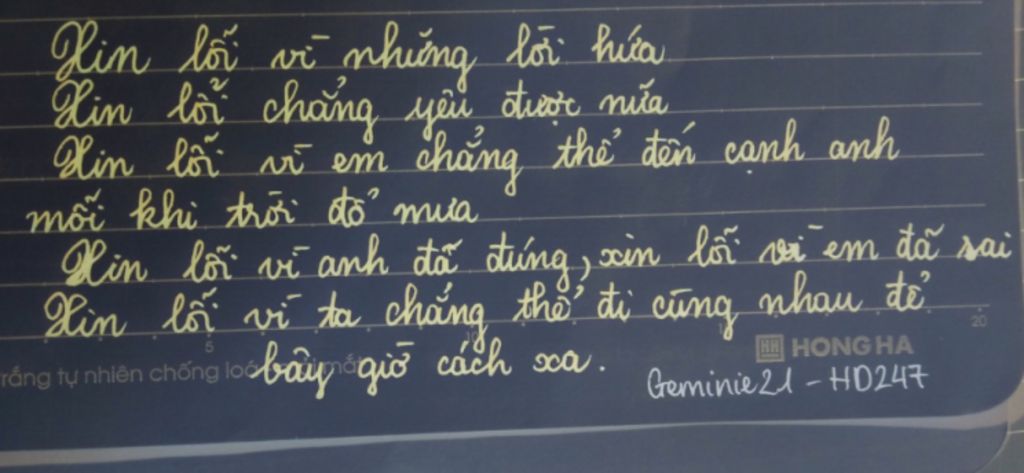 Xin lỗi vì những lời hứa
Xin lỗi chẳng yêu được nữa
Xin lỗi vì em chẳng thể đến cạnh anh
mỗi khi trời đổ mưa
Xin lỗi vì anh đã đúng, xin lỗi vì em đã sai
Xin lỗi vì ta chẳng thể đi cùng nhau để
5 10 15 20
HH HONG HA
trắng tự nhiên chống loá mắt
bây giờ cách xa.
Geminie21 - HD247